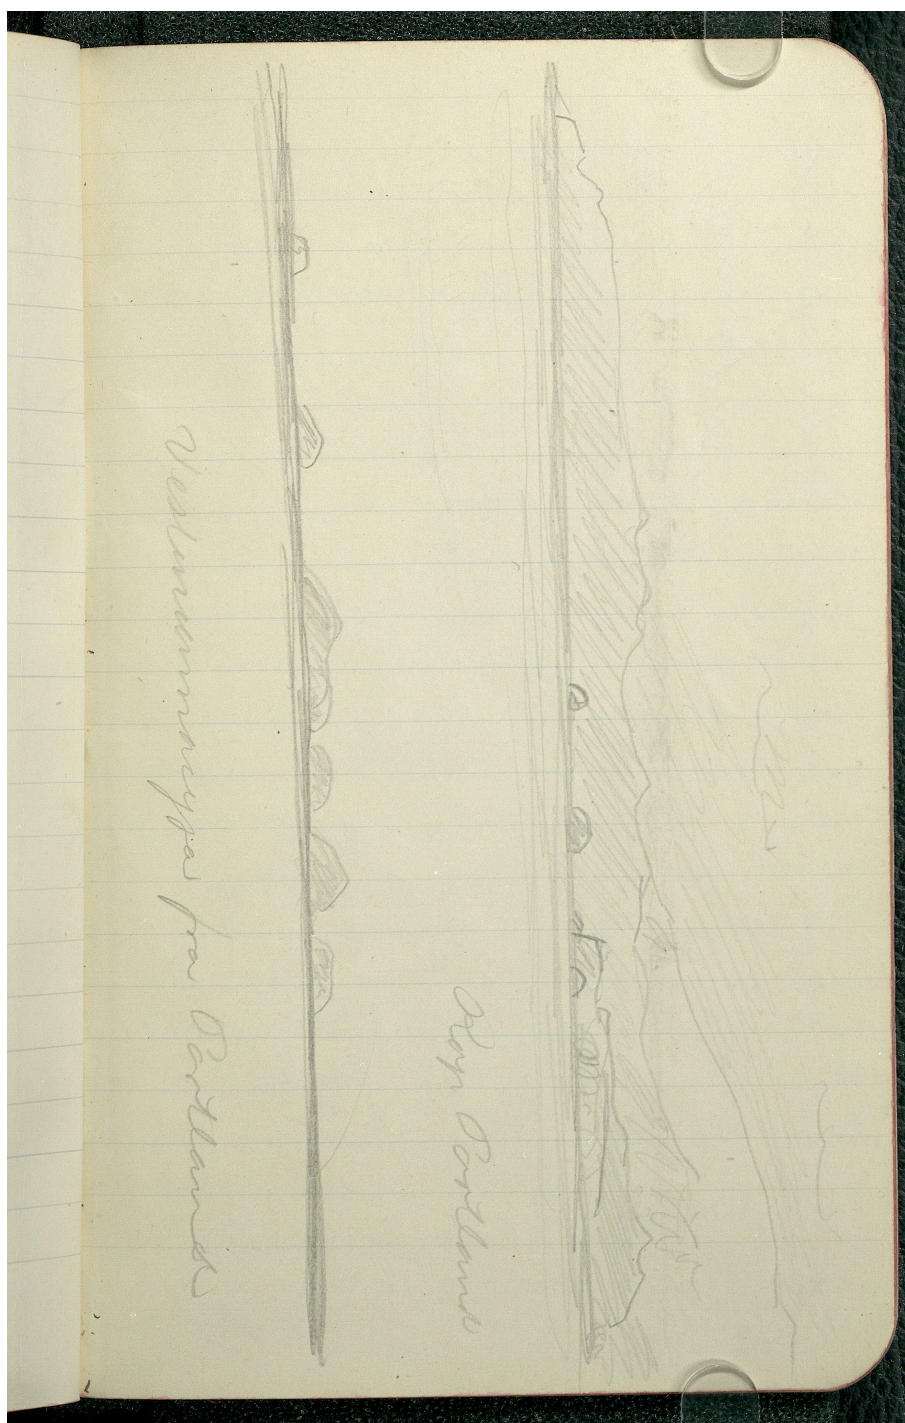 Kap Portland
Vestmannaeyja fra Portland